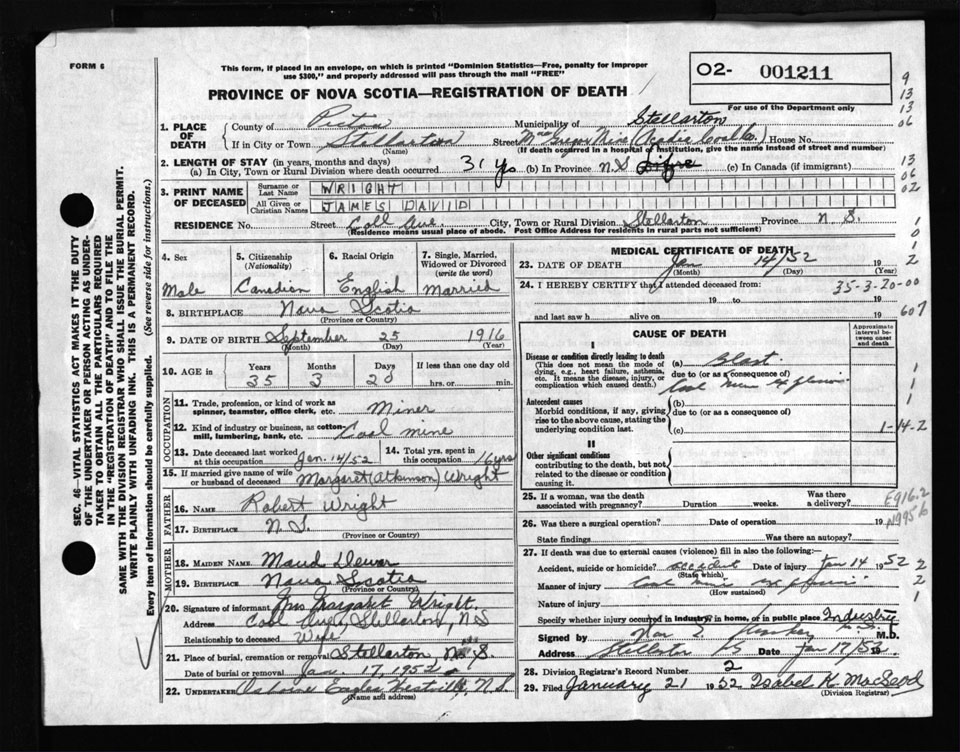 FORM 6
This form, if placed in an envelope, on which is printed "Dominion Statistics—Free, penalty for improper
use $300," and properly addressed will pass through the mail "FREE"
O2- 001211
For use of the Department only
PROVINCE OF NOVA SCOTIA—REGISTRATION OF DEATH
9
13
13
06
1. PLACE OF DEATH County of Pictou Municipality of Stellarton
If in City or Town Stellarton Street (Acadia Coal Co.) House No.
(Name) (If death occurred in a hospital or institution, give the name instead of street and number)
2. LENGTH OF STAY (in years, months and days)
(a) In City, Town or Rural Division where death occurred 31 yrs (b) In Province N.S. Life (c) In Canada (if immigrant)
13
06
02
3. PRINT NAME OF DECEASED Surname or Last Name WRIGHT
All Given or Christian Names JAMES DAVID
RESIDENCE No. Street Coal Ave. City, Town or Rural Division Stellarton Province N. S.
(Residence means usual place of abode. Post Office Address for residents in rural parts not sufficient)
1
0
1
2
4. Sex 5. Citizenship (Nationality) 6. Racial Origin 7. Single, Married, Widowed or Divorced (write the word)
Male Canadian English Married
8. BIRTHPLACE Nova Scotia
(Province or Country)
9. DATE OF BIRTH September 25 1916
(Month) (Day) (Year)
10. AGE in Years Months Days If less than one day old
35 3 20 hrs. or min.
OCCUPATION
11. Trade, profession, or kind of work as
spinner, teamster, office clerk, etc. Miner
12. Kind of industry or business, as cotton-
mill, lumbering, bank, etc. Coal mine
13. Date deceased last worked at this occupation Jan. 14/52 14. Total yrs. spent in this occupation 16 yrs
15. If married give name of wife
or husband of deceased Margaret (Atkinson) Wright
FATHER
16. NAME Robert Wright
17. BIRTHPLACE N.S.
(Province or Country)
MOTHER
18. MAIDEN NAME Maud Dewar
19. BIRTHPLACE Nova Scotia
(Province or Country)
20. Signature of informant Mrs Margaret Wright.
Address Coal Ave, Stellarton, N.S
Relationship to deceased Wife
21. Place of burial, cremation or removal Stellarton N. S.
Date of burial or removal Jan. 17, 1952
22. UNDERTAKER Osborne Eagles Westville, N.S.
(Name and Address)
MEDICAL CERTIFICATE OF DEATH
23. DATE OF DEATH Jan 14/52 19
(Month) (Day) (Year)
24. I HEREBY CERTIFY that I attended deceased from: 35-3-20-00
19 to 19
and last saw h alive on 19 607
CAUSE OF DEATH
Approximate interval between onset and death
I
Disease or condition directly leading to death
(This does not mean the mode of
dying, e.g., heart failure, asthenia,
etc. It means the disease, injury, or
complication which caused death.)
(a) Blast
due to (or as a consequence of)
Coal mine explosion
Antecedent causes
Morbid conditions, if any, giving
rise to the above cause, stating the
underlying condition last.
(b)
due to (or as a consequence of)
(c)
1
1
1
1-14-2
II
Other significant conditions
contributing to the death, but not
related to the disease or condition
causing it.
25. If a woman, was the death
associated with pregnancy? Duration weeks. Was there a delivery?
E916.2
N995.6
26. Was there a surgical operation? Date of operation 19
State findings Was there an autopsy?
27. If death was due to external causes (violence) fill in also the following:—
Accident, suicide or homicide? accident Date of injury Jan 14 1952
(State which)
Manner of injury Coal mine explosion
(How sustained)
Nature of injury
2
2
1
Specify whether injury occurred in industry, in home, or in public place Industry
Signed by M.D.
Address Stellarton NS Date Jan 17/52 19
28. Division Registrar's Record Number 2
29. Filed January 21 1952 Isabel K. MacLeod
(Division Registrar)
SEC. 46—VITAL STATISTICS ACT MAKES IT THE DUTY
OF THE UNDERTAKER OR PERSON ACTING AS UNDER-
TAKER TO OBTAIN ALL THE PARTICULARS REQUIRED
IN THE "REGISTRATION OF DEATH" AND TO FILE THE
SAME WITH THE DIVISION REGISTRAR WHO SHALL ISSUE THE BURIAL PERMIT.
WRITE PLAINLY WITH UNFADING INK. THIS IS A PERMANENT RECORD.
Every item of information should be carefully supplied. (See reverse side for instructions.)